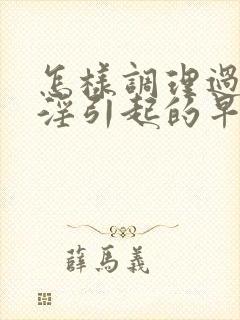 怎樣調理過
淫引起的早
薛馬義